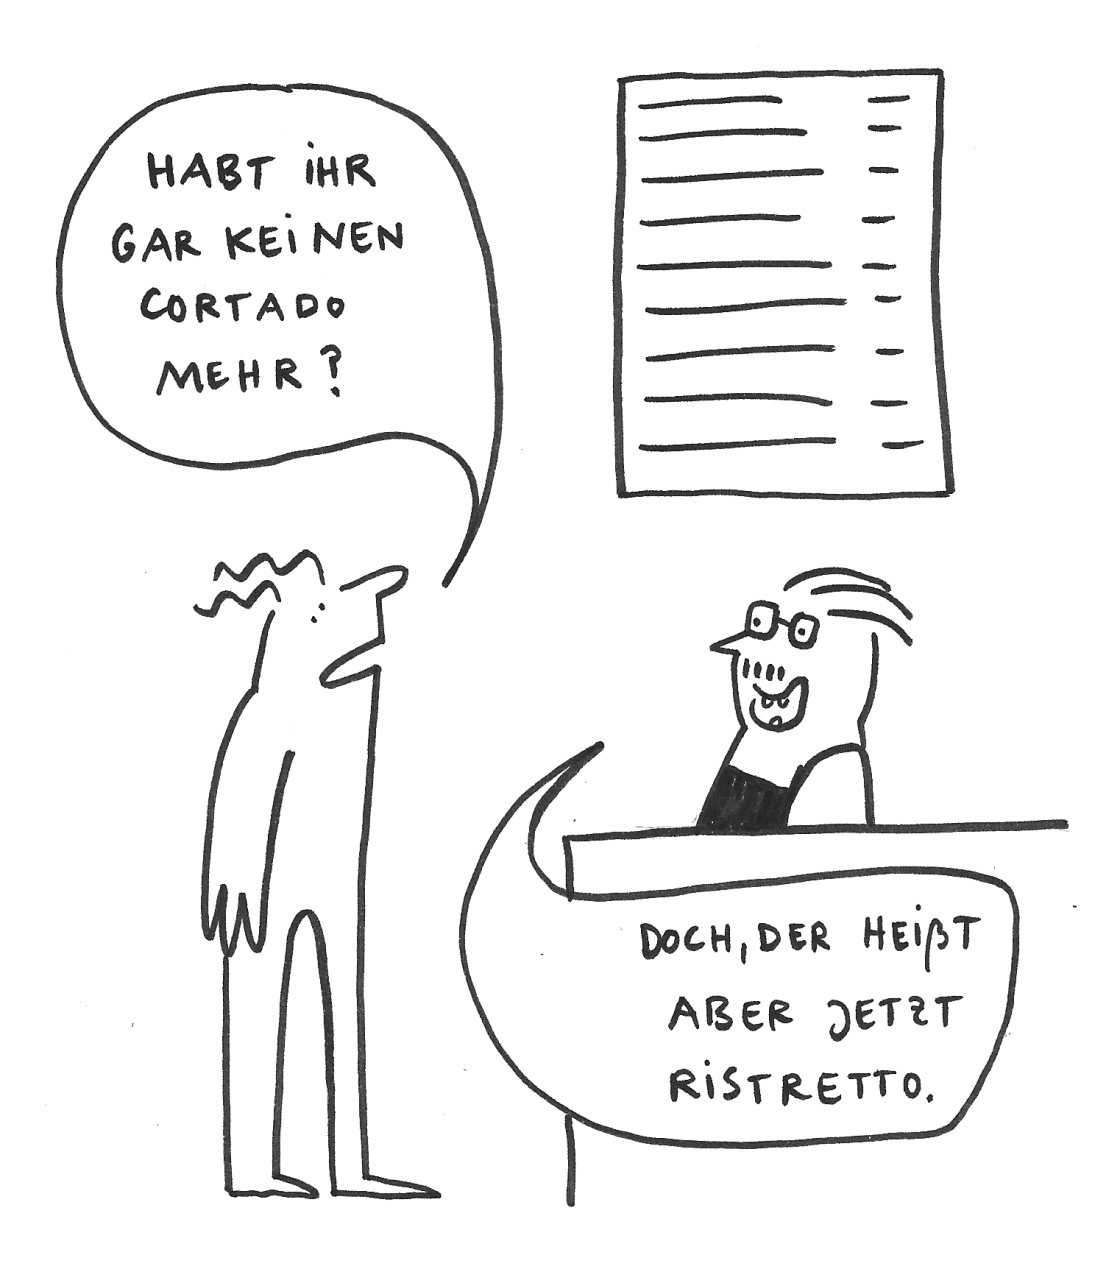 HABT IHR
GAR KEINEN
CORTADO
MEHR?
DOCH, DER HEIßT
ABER JETZT
RISTRETTO.